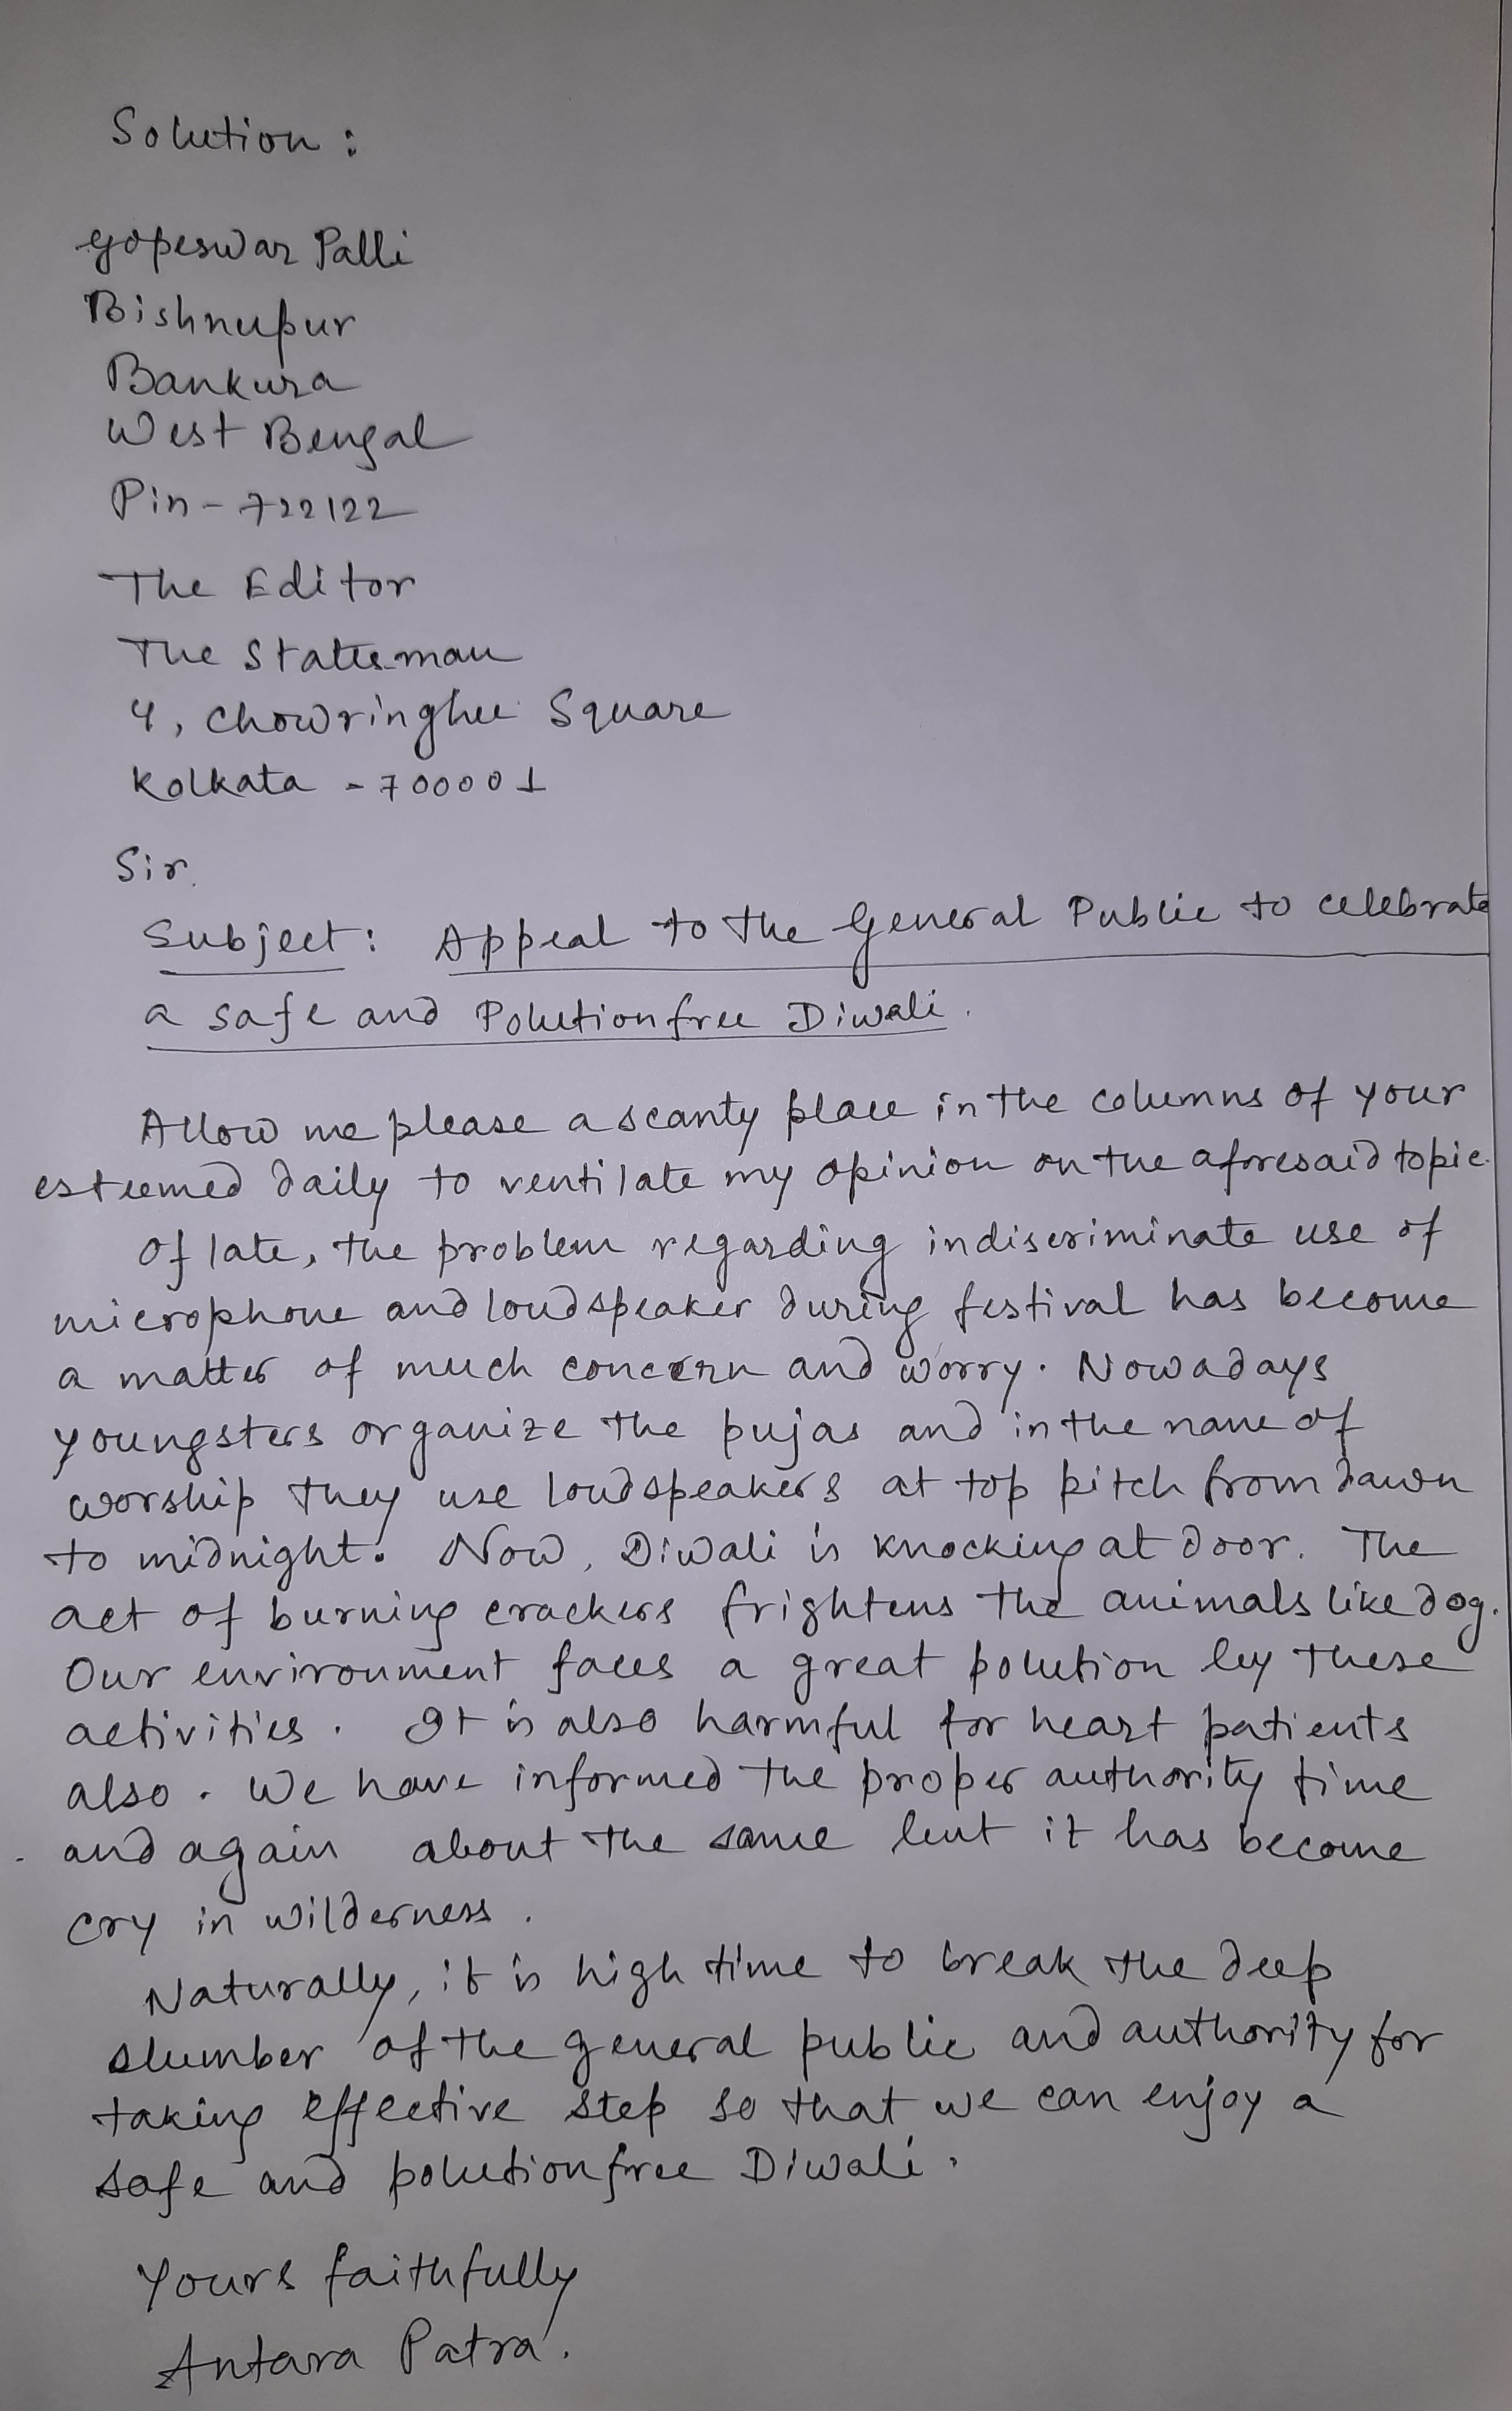 Solution :
Gopeswar Palli
Bishnupur
Bankura
West Bengal
Pin - 722122
The Editor
The Statesman
4, Chowringhee Square
Kolkata - 700001
Sir,
Subject : Appeal to the General Public to celebrate
a safe and Polutionfree Diwali.
Allow me please a scanty place in the columns of your
esteemed daily to ventilate my opinion on the aforesaid topic.
Of late, the problem regarding indiscriminate use of
microphone and loudspeaker during festival has become
a matter of much concern and worry. Nowadays
youngsters organize the pujas and in the name of
worship they use loudspeakers at top pitch from dawn
to midnight. Now, Diwali is knocking at door. The
act of burning crackers frightens the animals like dog.
Our environment faces a great polution by these
activities. It is also harmful for heart patients
also. We have informed the proper authority time
and again about the same but it has become
cry in wilderness.
Naturally, it is high time to break the deep
slumber of the general public and authority for
taking effective step so that we can enjoy a
safe and polutionfree Diwali.
Yours faithfully
Antara Patra.